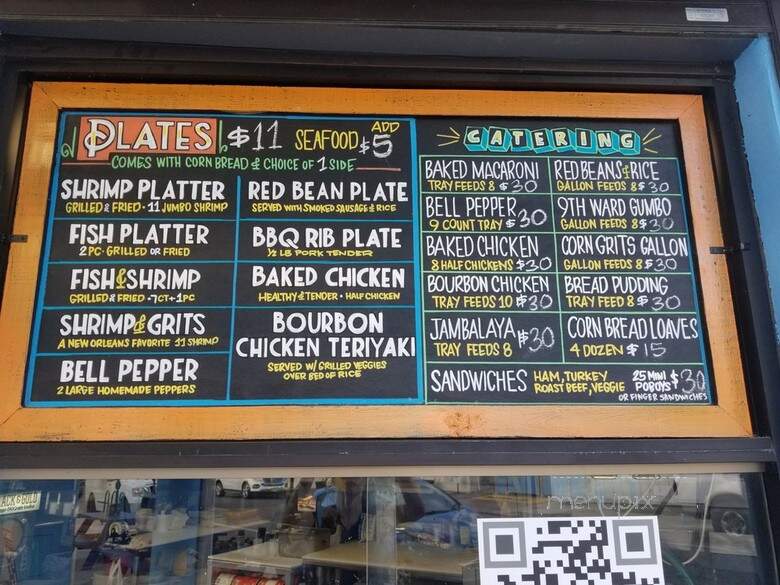 PLATES $11 SEAFOOD ADD $5
COMES WITH CORN BREAD & CHOICE OF 1 SIDE
SHRIMP PLATTER
GRILLED & FRIED · 11 JUMBO SHRIMP
FISH PLATTER
2 PC · GRILLED OR FRIED
FISH & SHRIMP
GRILLED & FRIED · 7CT + 1PC
SHRIMP & GRITS
A NEW ORLEANS FAVORITE 11 SHRIMP
BELL PEPPER
2 LARGE HOMEMADE PEPPERS
RED BEAN PLATE
SERVED WITH SMOKED SAUSAGE & RICE
BBQ RIB PLATE
1/2 LB PORK TENDER
BAKED CHICKEN
HEALTHY & TENDER · HALF CHICKEN
BOURBON
CHICKEN TERIYAKI
SERVED W/ GRILLED VEGGIES
OVER BED OF RICE
CATERING
BAKED MACARONI
TRAY FEEDS 8 $30
BELL PEPPER
9 COUNT TRAY $30
BAKED CHICKEN
8 HALF CHICKENS $30
BOURBON CHICKEN
TRAY FEEDS 10 $30
JAMBALAYA $30
TRAY FEEDS 8
RED BEANS & RICE
GALLON FEEDS 8 $30
9TH WARD GUMBO
GALLON FEEDS 8 $30
CORN GRITS GALLON
GALLON FEEDS 8 $30
BREAD PUDDING
TRAY FEED 8 $30
CORN BREAD LOAVES
4 DOZEN $15
SANDWICHES HAM, TURKEY
ROAST BEEF, VEGGIE
25 MINI
POBOYS $30
OR FINGER SANDWICHES
menupix